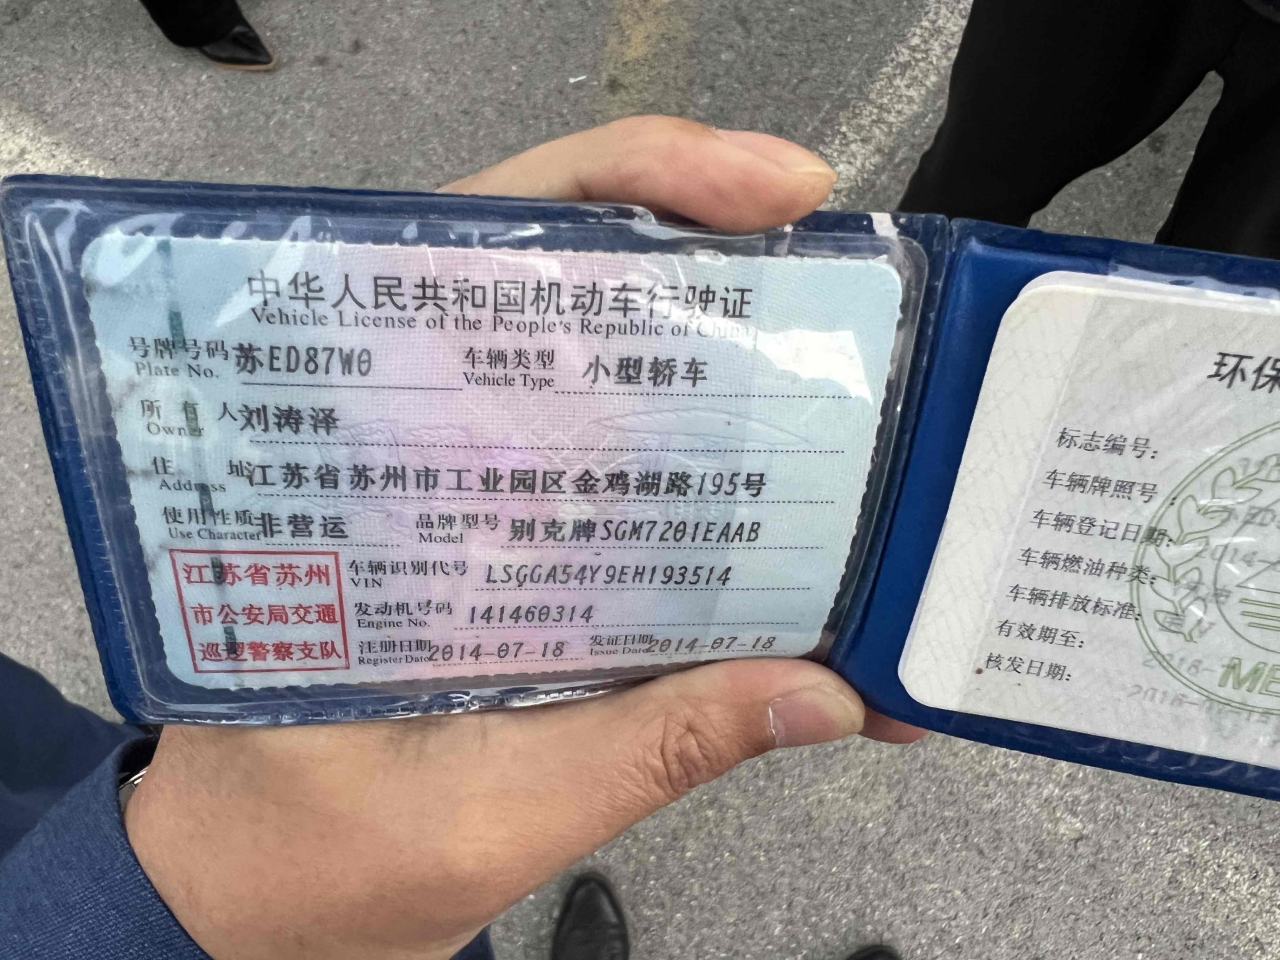 中华人民共和国机动车行驶证
Vehicle License of the People's Republic of China
号牌号码 苏ED87W0 车辆类型 小型轿车
Plate No. Vehicle Type
所有人 刘涛泽
Owner
住址 江苏省苏州市工业园区金鸡湖路195号
Address
使用性质 非营运 品牌型号 别克牌SGM7201EAAB
Use Character Model
江苏省苏州
市公安局交通
巡逻警察支队
车辆识别代号 LSGGA54Y9EH193514
VIN
发动机号码 141460314
Engine No.
注册日期 2014-07-18 发证日期 2014-07-18
Register Date Issue Date
环保
标志编号:
车辆牌照号:
车辆登记日期: 2014-
车辆燃油种类:
车辆排放标准:
有效期至:
核发日期: